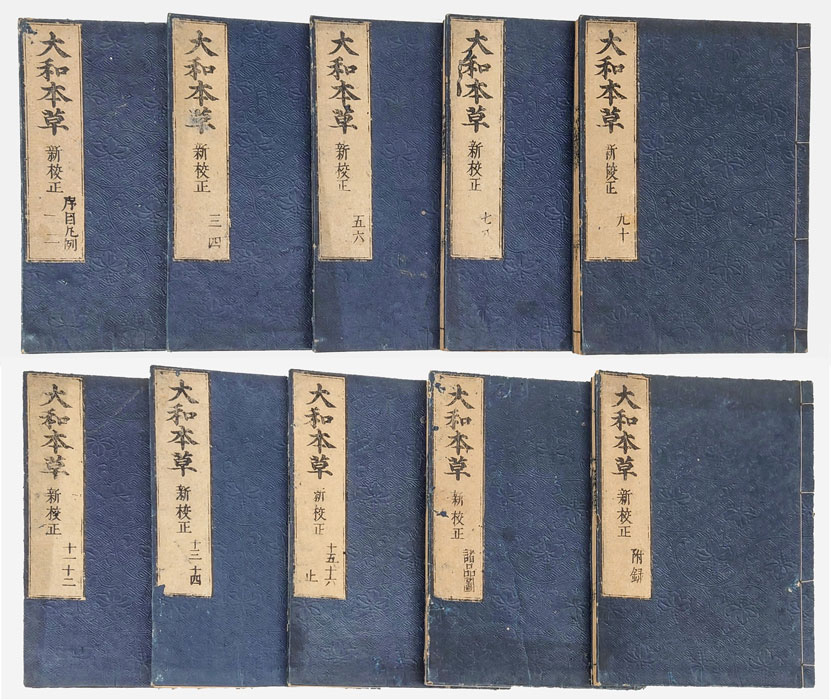 大和本草
新校正
序目凡例
一二
大和本草
新校正
三四
大和本草
新校正
五六
大和本草
新校正
七八
大和本草
新校正
九十
大和本草
新校正
十一十二
大和本草
新校正
十三十四
大和本草
新校正
十五十六
止
大和本草
新校正
諸品圖
大和本草
新校正
附録